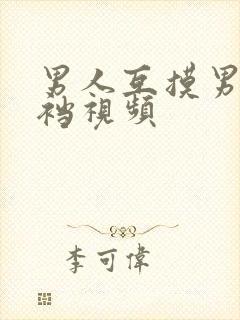 男人互摸男
裆視頻
李可偉